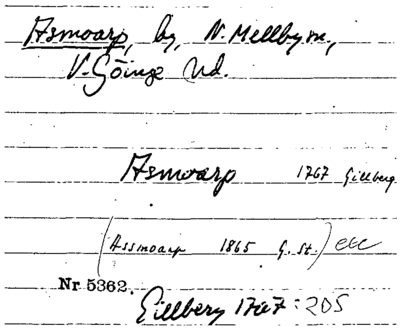 Asmoarp, by, N. Mellby sn,
V. Göinge hd.
Asmoarp 1767 Gillberg
(Assmoarp 1865 G. St.) etc
Nr 5362.
Gillberg 1767: 205